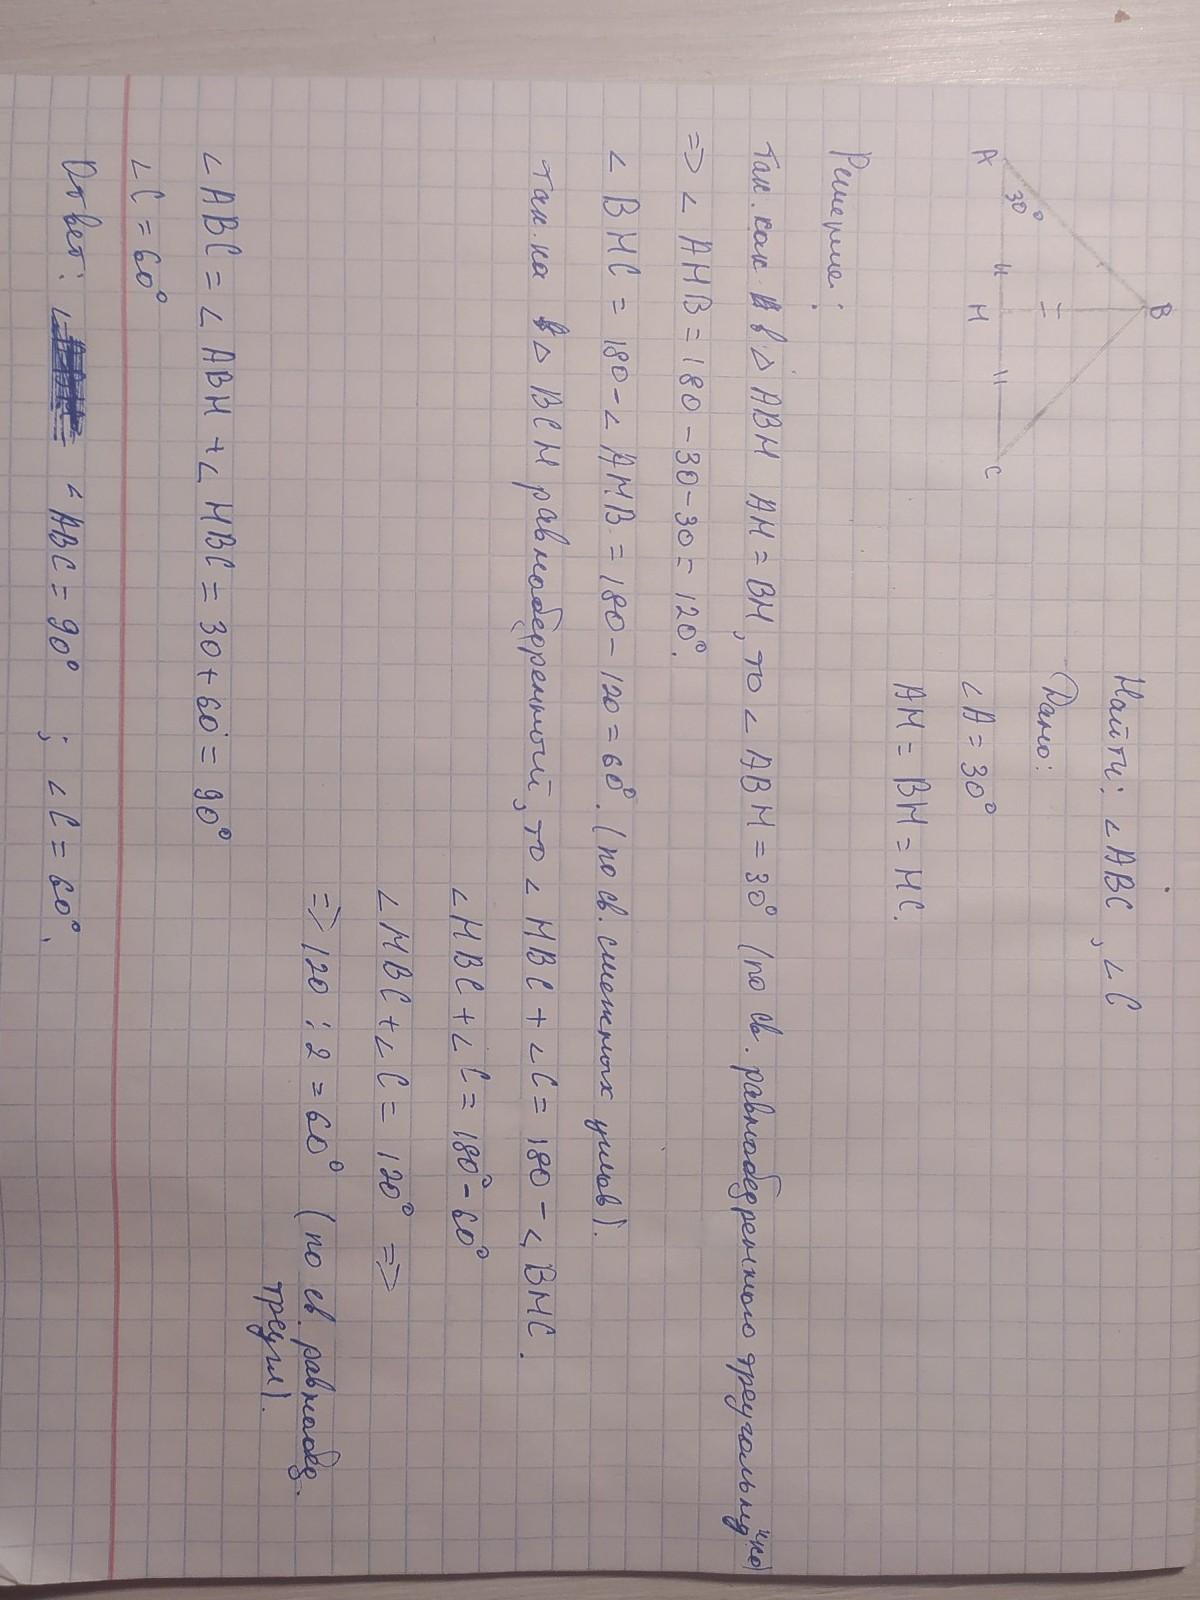 B
A
30°
M
C
Найти: ∠ABC, ∠C
Дано:
∠A = 30°
AM = BM = MC.
Решение:
Так как в △ ABM AM = BM, то ∠ ABM = 30° (по св. равнобедренного треугольника)
=> ∠ AMB = 180 - 30 - 30 = 120°.
∠ BMC = 180 - ∠ AMB = 180 - 120 = 60°. (по св. смежных углов).
так ка в △ BCM равнобедренный, то ∠ MBC + ∠C = 180 - ∠ BMC.
∠MBC + ∠C = 180° - 60°
∠MBC + ∠C = 120° =>
=> 120 : 2 = 60° (по св. равнобед.
треугл).
∠ ABC = ∠ ABM + ∠ MBC = 30 + 60 = 90°
∠C = 60°
Ответ: ∠ ∠ ABC = 90° ; ∠C = 60°.